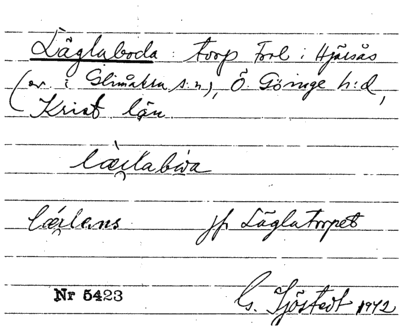 Läglaboda: torp Forl. i Hjärsås
(ev. i Glimåkra s:n), Ö. Göinge h:d,
Krist. län
jfr Läglatorpet
Nr 5423 G. Sjöstedt 1942